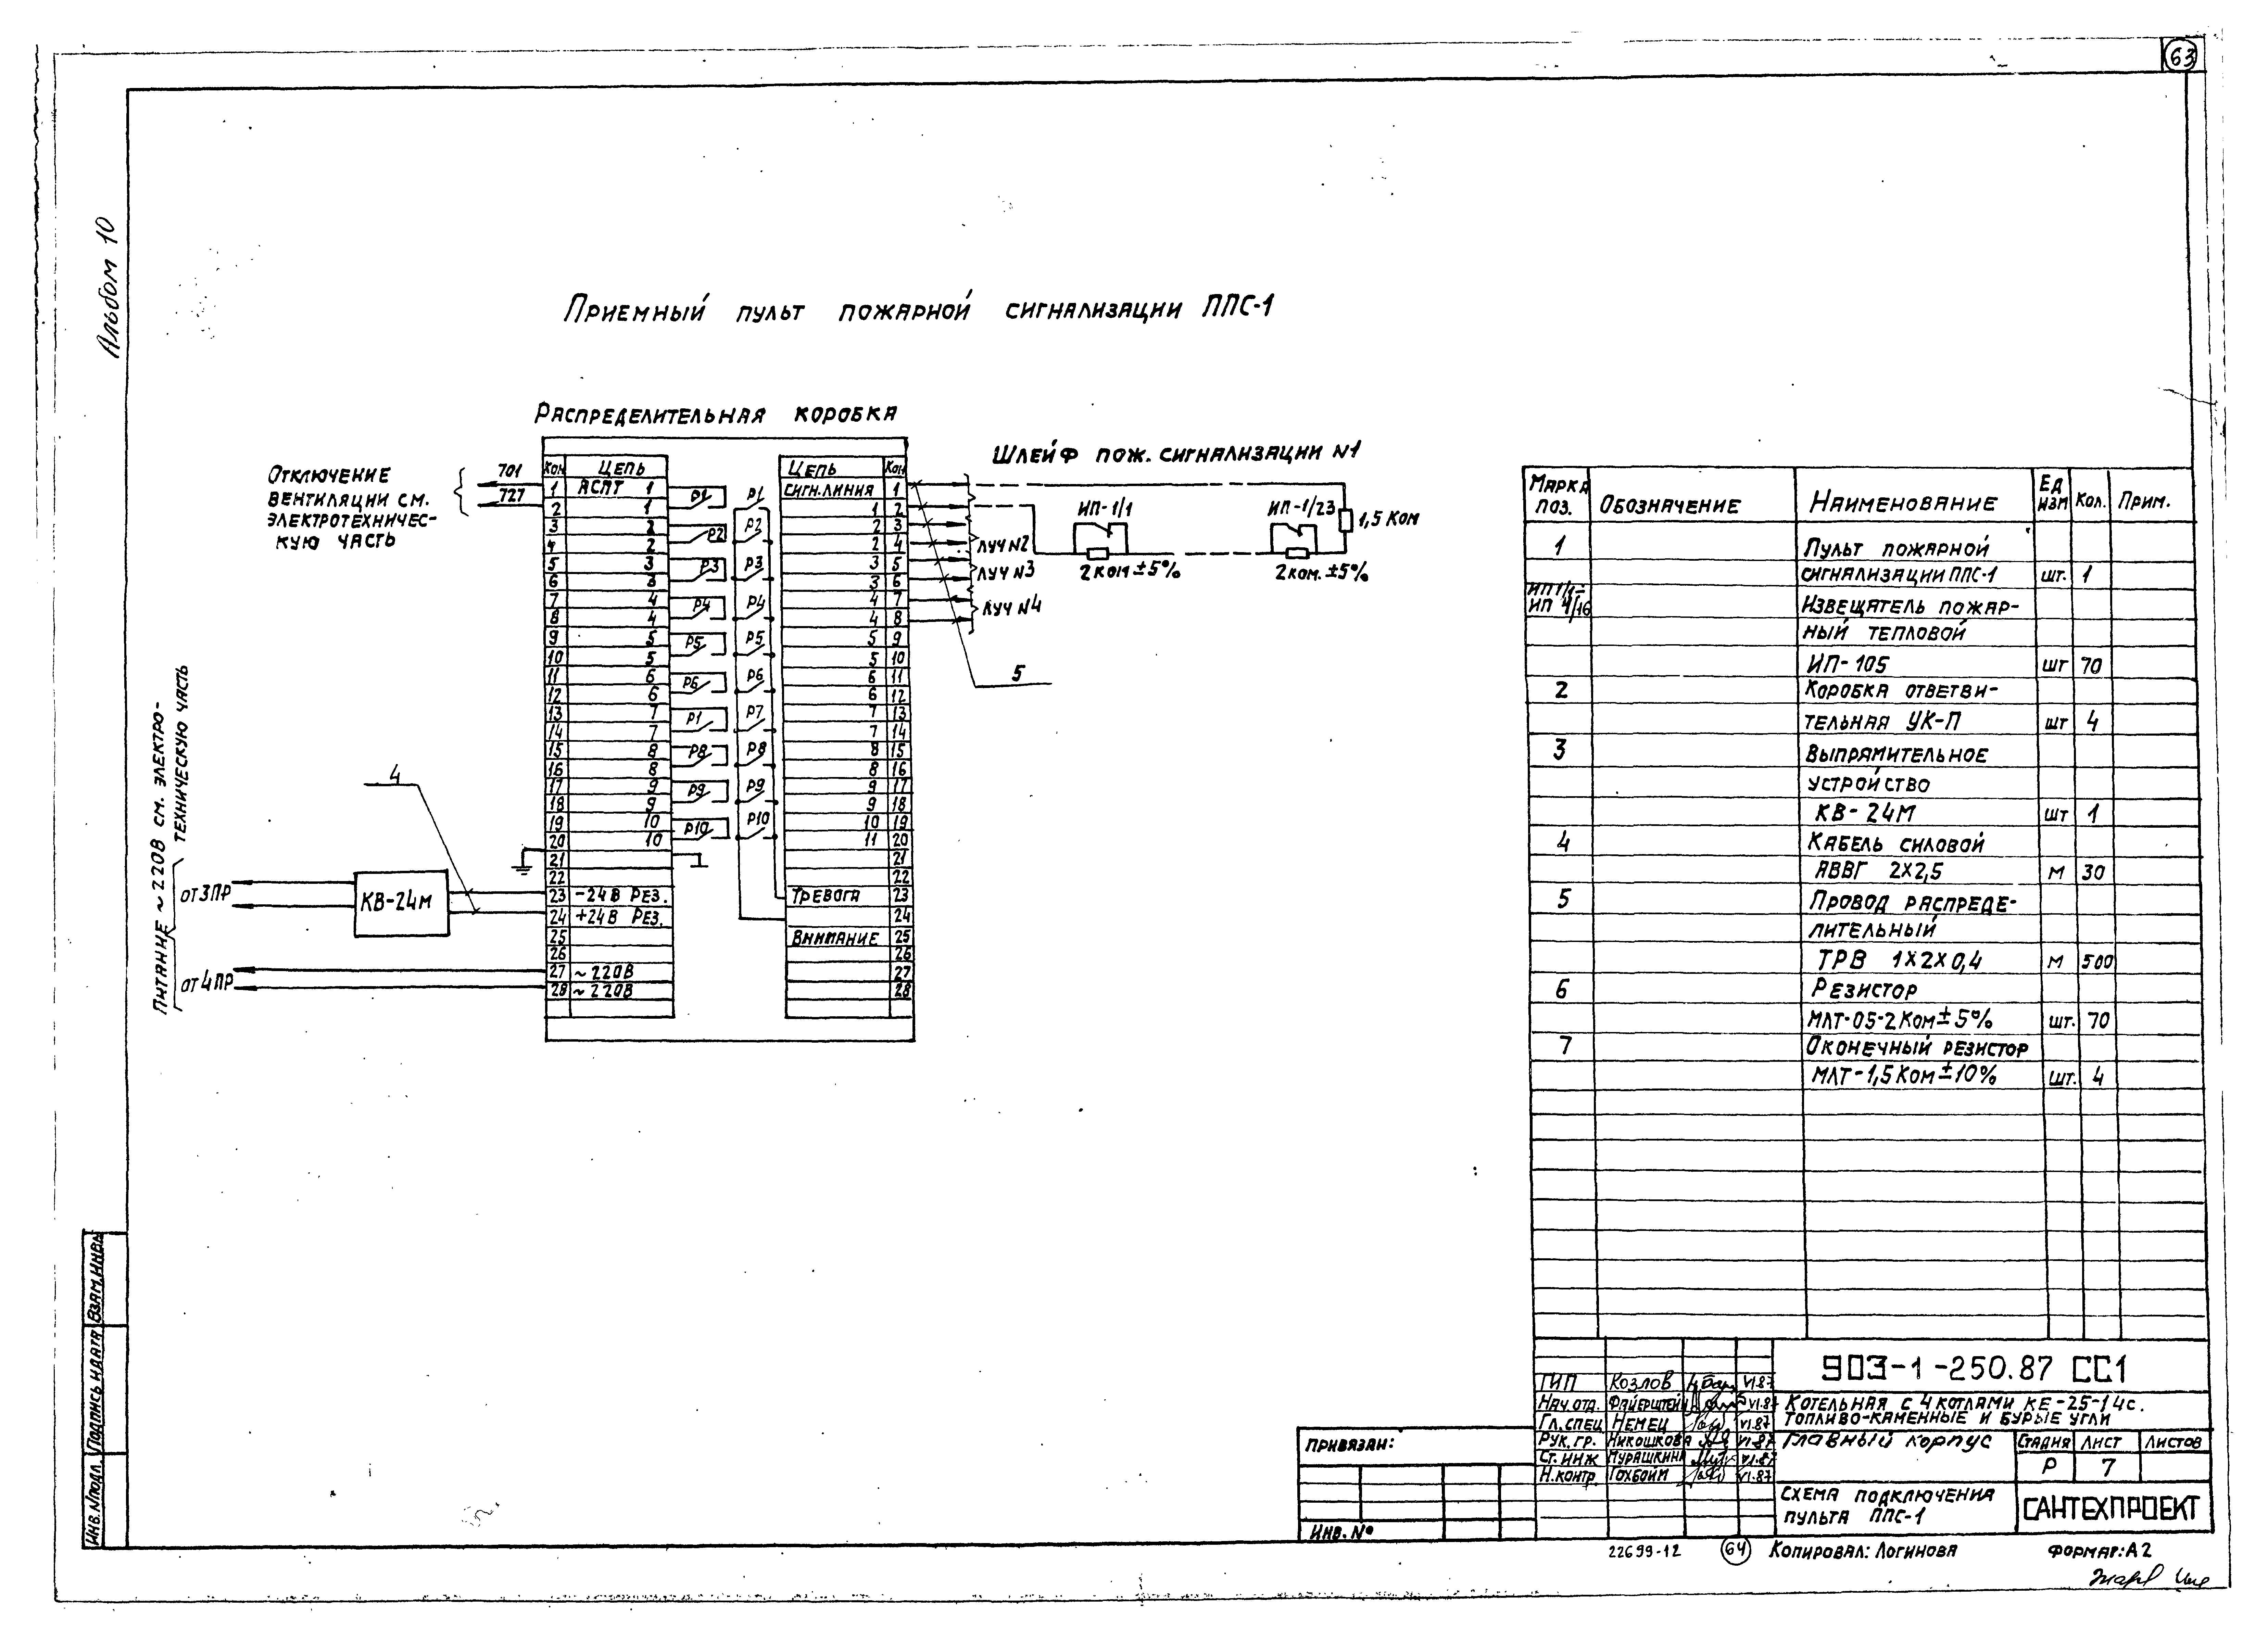 63
Альбом 10
Приемный пульт пожарной сигнализации ППС-1
Распределительная коробка
Отключение
вентиляции см.
электротехничес-
кую часть
701
727
Кон Цепь
1 АСПТ 1
2 1
3 2
4 2
5 3
6 3
7 4
8 4
9 5
10 5
11 6
12 6
13 7
14 7
15 8
16 8
17 9
18 9
19 10
20 10
21
22
23 -24В Рез.
24 +24В Рез.
25
26
27 ~220В
28 ~220В
Р1 Р1
Р2 Р2
Р3 Р3
Р4 Р4
Р5 Р5
Р6 Р6
Р1 Р7
Р8 Р8
Р9 Р9
Р10 Р10
Цепь Кон
Сигн.линия 1
1 2
2 3
2 4
3 5
3 6
4 7
4 8
5 9
5 10
6 11
6 12
7 13
7 14
8 15
8 16
9 17
9 18
10 19
11 20
21
22
Тревога 23
24
Внимание 25
26
27
28
Шлейф пож. сигнализации N1
ИП-1/1
ИП-1/23
1,5 Ком
2 ком ±5%
2 ком. ±5%
Луч N2
Луч N3
Луч N4
5
4
КВ-24М
от 3ПР
от 4ПР
Питание ~220В см. электро-
техническую часть
Марка поз. Обозначение Наименование Ед изм Кол. Прим.
1 Пульт пожарной
сигнализации ППС-1 шт. 1
ИП 1/1-
ИП 4/16 Извещатель пожар-
ный тепловой
ИП-105 шт 70
2 Коробка ответви-
тельная УК-П шт 4
3 Выпрямительное
устройство
КВ-24М шт 1
4 Кабель силовой
АВВГ 2х2,5 м 30
5 Провод распреде-
лительный
ТРВ 1х2х0,4 м 500
6 Резистор
МЛТ-05-2Ком±5% шт. 70
7 Оконечный резистор
МЛТ-1,5Ком±10% шт. 4
903-1-250.87 СС1
Котельная с 4 котлами КЕ-25-14с.
Топливо-каменные и бурые угли
ГИП Козлов VI.87
Нач.отд. Файерштейн VI.87
Гл.спец Немец VI.87
Рук.гр. Никошкова VI.87
Ст.инж Мурашкина VI.87
Н.контр Гохбойм VI.87
Главный корпус
Стадия Лист Листов
Р 7
Схема подключения
пульта ППС-1
САНТЕХПРОЕКТ
Привязан:
Инв. №
Инв.№подл. Подпись и дата Взам.инв№
22699-12
64
Копировал: Логинова
Формат: А2